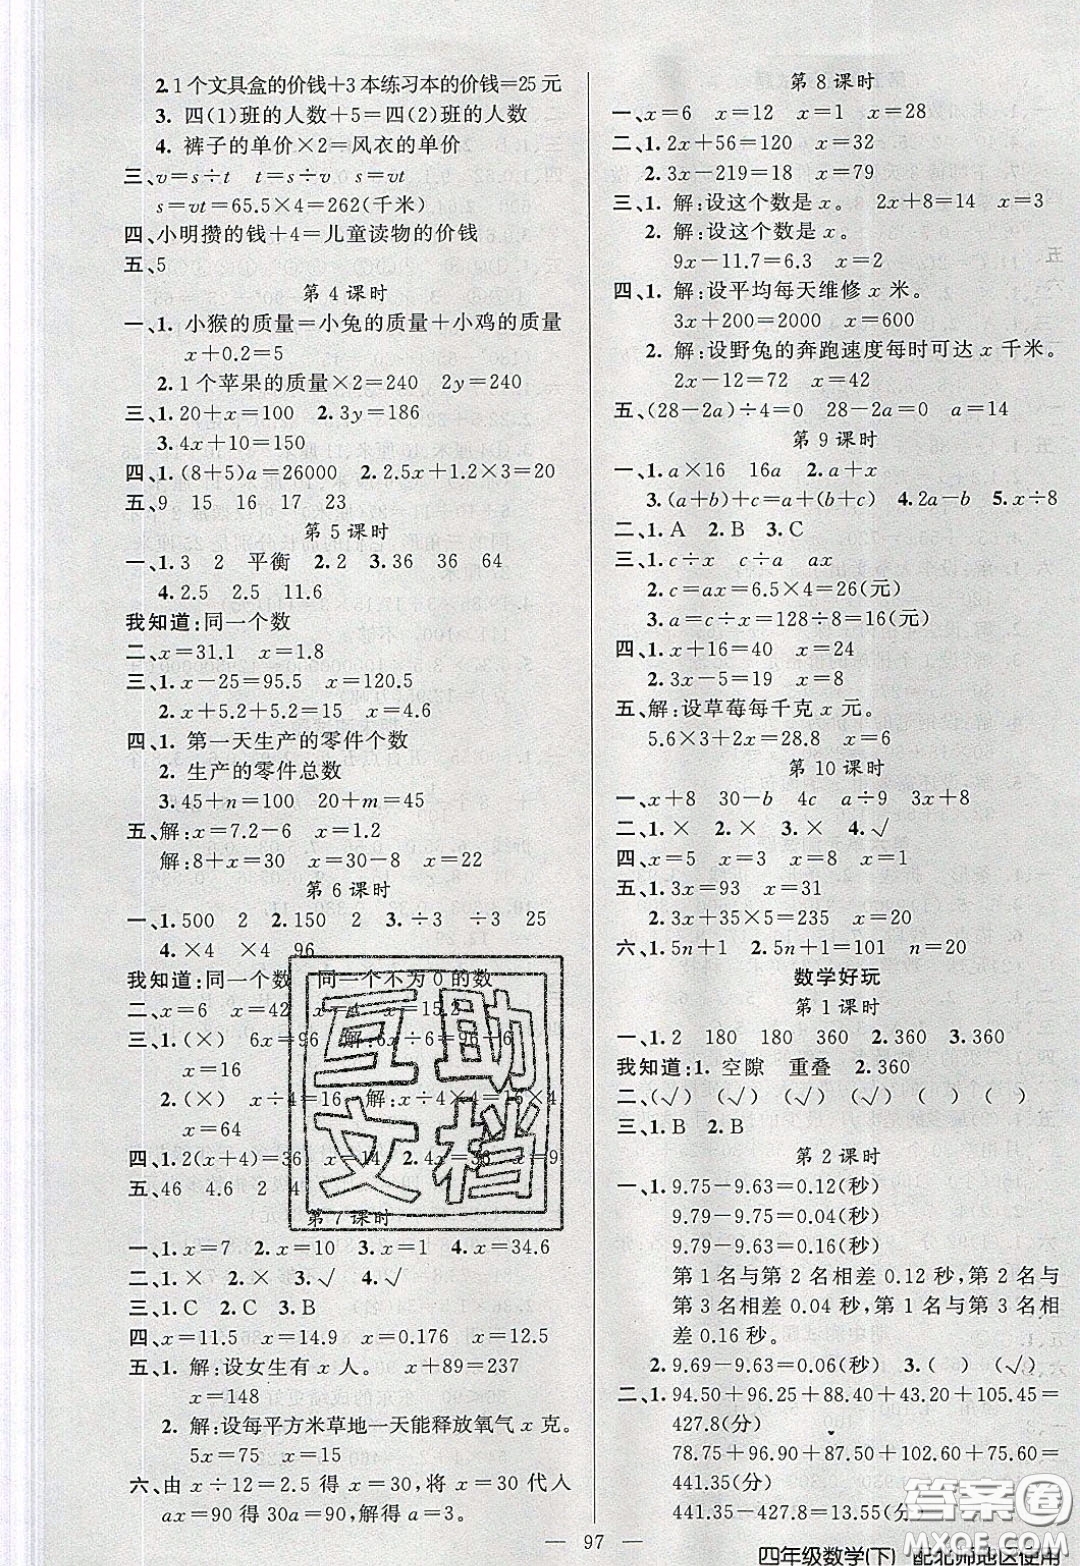 2.1个文具盒的价钱+3本练习本的价钱=25元
3. 四(1)班的人数+5=四(2)班的人数
4. 裤子的单价×2=风衣的单价
三、v=s÷t t=s÷v s=vt
s=vt=65.5×4=262(千米)
四、小明攒的钱+4=儿童读物的价钱
五、5
第4课时
一、1. 小猴的质量=小兔的质量+小鸡的质量
x+0.2=5
2.1个苹果的质量×2=240 2y=240
三、1.20+x=100 2.3y=186
3.4x+10=150
四、1.(8+5)a=26000 2.2.5x+1.2×3=20
五、9 15 16 17 23
第5课时
一、1.3 2 平衡 2.2 3.36 36 64
4.2.5 2.5 11.6
我知道:同一个数
二、x=31.1 x=1.8
三、1.x-25=95.5 x=120.5
2.x+5.2+5.2=15 x=4.6
四、1. 第一天生产的零件个数
2. 生产的零件总数
3.45+n=100 20+m=45
五、解:x=7.2-6 x=1.2
解:8+x=30 x=22
第6课时
一、1.500 2 2.150 2 3.÷3 ÷3 25
4.×4 ×4 96
我知道:同一个数 同一个不为0的数
二、x=6 x=42 x=4 x=15.2
三、1.(×) 6x=96 解:6x÷6=96÷6
x=16
2.(×) x÷4=16 解:x÷4×4=16×4
x=64
四、1.2(x+4)=36 x=14 2.4x=36 x=9
五、46 4.6 2 4
第7课时
一、1.x=7 2.x=10 3.x=1 4.x=34.6
二、1.× 2.× 3.√ 4.√
三、1.C 2.C 3.B
四、x=11.5 x=14.9 x=0.176 x=12.5
五、1. 解:设女生有x人。 x+89=237
x=148
2. 解:设每平方米草地一天能释放氧气x克。
5x=75 x=15
六、由x÷12=2.5得x=30,将x=30代人
ax=90得30a=90,解得a=3。
第8课时
一、x=6 x=12 x=1 x=28
二、1.2x+56=120 x=32
2.3x-219=18 x=79
三、1. 解:设这个数是x。 2x+8=14 x=3
2. 解:设这个数是x。
9x-11.7=6.3 x=2
四、1. 解:设平均每天维修x米。
3x+200=2000 x=600
2. 解:设野兔的奔跑速度每时可达x千米。
2x-12=72 x=42
五、(28-2a)÷4=0 28-2a=0 a=14
第9课时
一、1.a×16 16a 2.a+x
3.(a+b)+c=a+(b+c) 4.2a-b 5.x÷8
二、1.A 2.B 3.C
三、1.c÷x c÷a ax
2.c=ax=6.5×4=26(元)
3.a=c÷x=128÷8=16(元)
四、1.x+16=40 x=24
2.3x-5=19 x=8
五、解:设草莓每千克x元。
5.6×3+2x=28.8 x=6
第10课时
一、x+8 30-b 4c a÷9 3x+8
二、1.× 2.× 3.× 4.√
四、x=5 x=3 x=8 x=1
五、1.3x=93 x=31
2.3x+35×5=235 x=20
六、1.5n+1 2.5n+1=101 n=20
数学好玩
第1课时
一、1.2 180 180 360 2.√ 3.360
我知道:1. 空隙 重叠 2.360
二、(√) (√) ( ) (√) ( ) ( )
三、1.B 2.B
第2课时
一、1.9.75-9.63=0.12(秒)
9.79-9.75=0.04(秒)
9.79-9.63=0.16(秒)
第1名与第2名相差0.12秒,第2名与
第3名相差0.04秒,第1名与第3名相
差0.16秒。
2.9.69-9.63=0.06(秒) 3.( ) (√)
二、1.94.50+96.25+88.40+43.20+105.45=
427.8(分)
78.75+90.96+87.50+102.80+75.60=
441.35(分)
441.35-427.8=13.55(分)
互助
文档
答案圈
MXQE.COM
97
四年级数学(下) 配北师地区使用